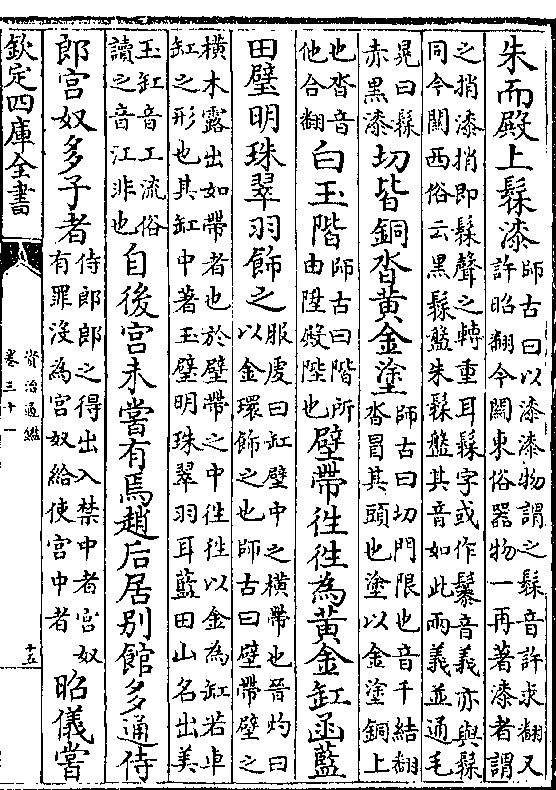 朱而殿上髹漆師古曰以漆漆物謂之髹音許求翻又許昭翻今關東俗器物一再著漆者謂
之捎漆捎即髹聲之轉重耳髹字或作䰍音義亦與髹同今關西俗云黑髹盤朱髹盤其音如此兩義並通毛
晃曰髹赤黒漆切皆銅沓黄金塗師古曰切門限也音千結翻沓冒其頭也塗以金塗銅上
也沓音他合翻白玉階師古曰階所由陞殿陛也壁帶往往為黄金缸函藍
田璧明珠翠羽飾之服虔曰缸壁中之横帶也晉灼曰以金環飾之也師古曰壁帶壁之
横木露出如帶者也於壁帶之中往往以金為缸若車缸之形也其缸中著玉璧明珠翠羽耳藍田山名出美
玉缸音工流俗讀之音江非也自後宫未嘗有焉趙后居别館多通侍
郎宫奴多子者侍郎郎之得出入禁中者宫奴有罪没為宫奴給使宫中者昭儀嘗
欽定四庫全書
資治通鑑
卷三十一
十五